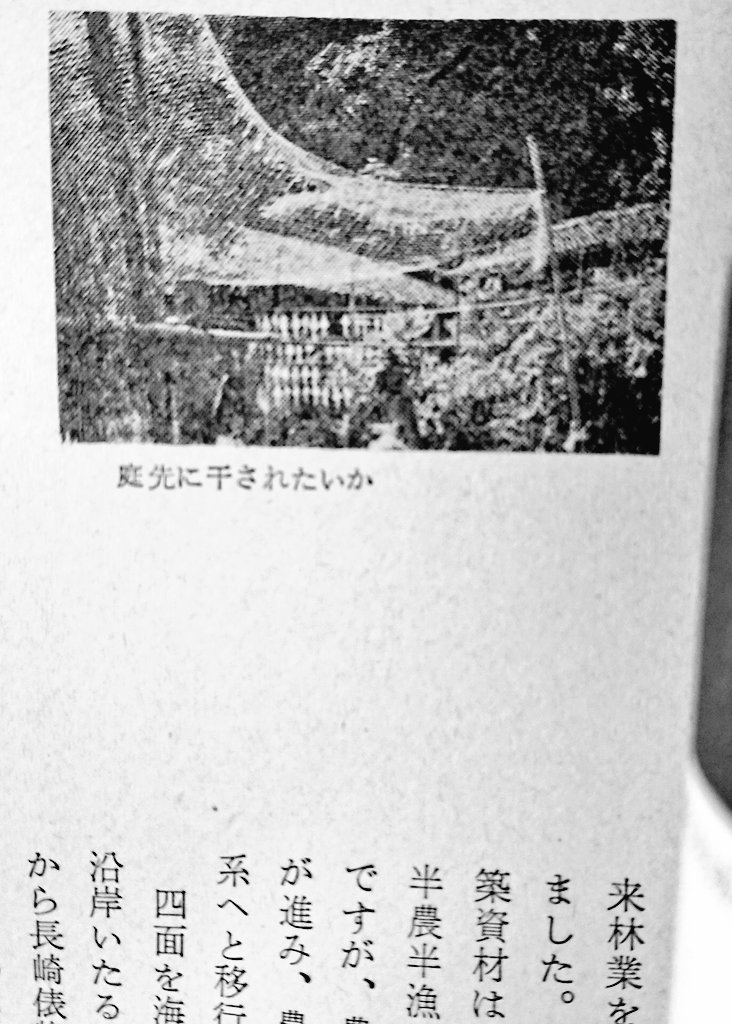 庭先に干されたいか
来林業を
ました。
築資材は
半農半漁
ですが、
が進み、
系へと移行
四面を海
沿岸いたる
から長崎俵